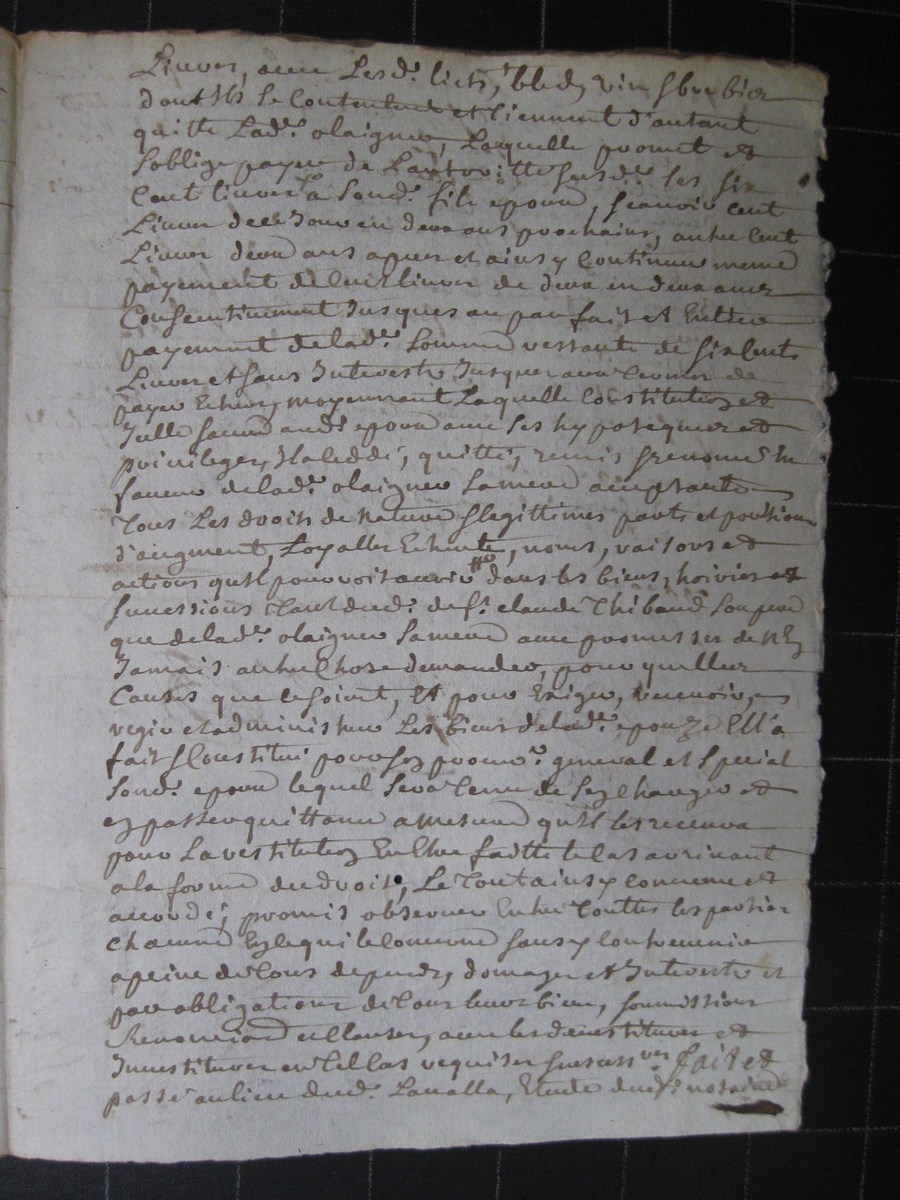 Livres, avec Lesds. licts, bleds, vin & brebier
dont Ils Se Contentent et tiennent d'autant
quitte Lade. olaignier, Laquelle promet et
Soblige payer de L'autoritté susde. les six
Cent livres a Sond. fils epoux, scavoir cent
Livres de ce Jour en deux ans prochains, autre Cent
Livres deux ans apres et ainsy Continuer meme
payement de Cent livres de deux en deux ans
Consecutivement Jusques au parfait et Entier
payement de lade. Somme restante de six Cents
Livres et sans Interests Jusques aux termes de
payer Echus, moyennant Laquelle Constitution et
Icelle sauve aud. epoux avec ses hypoteques et
privileges, Il a ceddé, quitté, remis & renoncé En
faveur de lade. olaignier Sa mere acceptante
tous Les droits de nature & legittimes parts et portions
d'augment, Loyalles Echute, noms, raisons et
actions qu'Il pouvoit avoir dans les biens, hoiries et
successions tant dud. deft. claude Thibaud Son pere
que de lade. olaignier Sa mere avec promesses de n'En
Jamais autre Chose demander, pour quelles
Causes que ce soient, Et pour Exiger, recevoir,
regir et administrer Les biens de lade. epouze Ell'a
fait & Constitué pour son procur. general et special
Sond. epoux lequel Sera tenu de s'en Charger et
en passer quittance a mesure qu'Il les recevra
pour La restitution En Etre faitte le cas arrivant
a la forme du droit, Le tout ainsy convenu et
accordé, promis observer Entre Touttes les parties
chacune En ce qui le concerne sans y contrevenir
a peine de tous depends, domages et Interests et
par obligations de tous leurs biens, soumissions
Renonciaõns et clauses, avec les devestitures et
Investitures en tel cas requises & necessres. fait et
passé au lieu dud. Lavalla, Etude dud. notaire